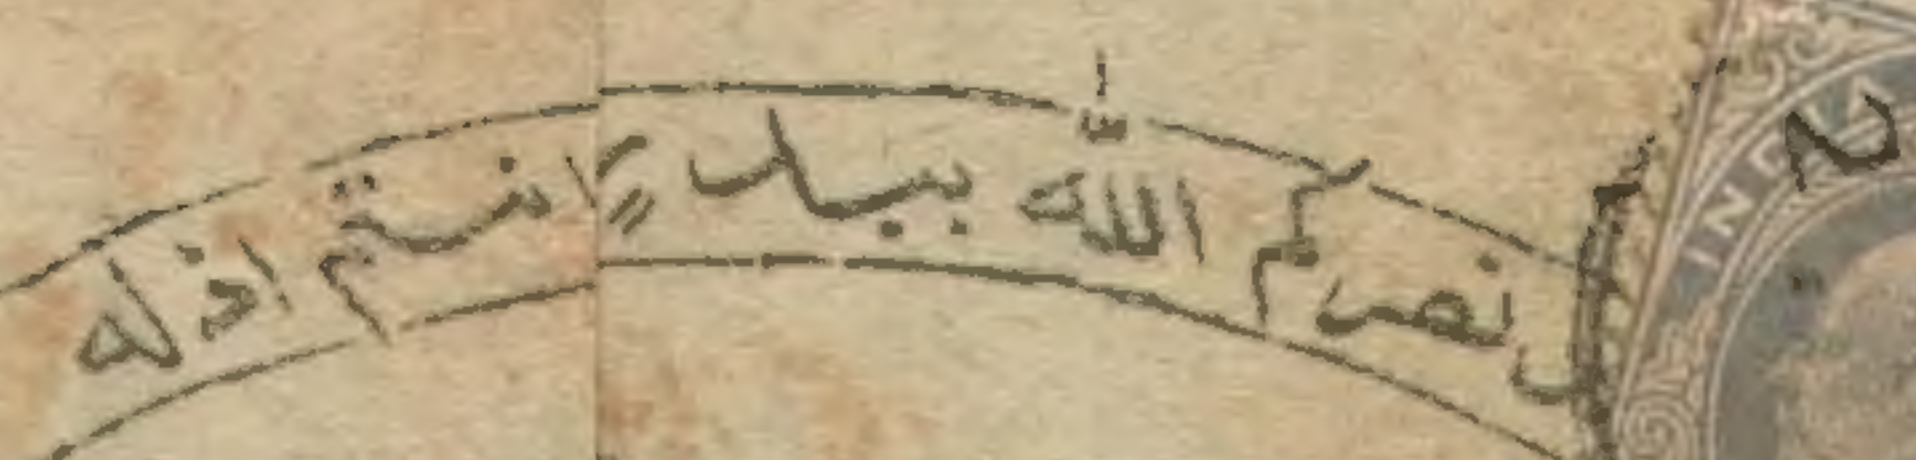 نصركم اللّٰه ببدرٍ وانتم اذله